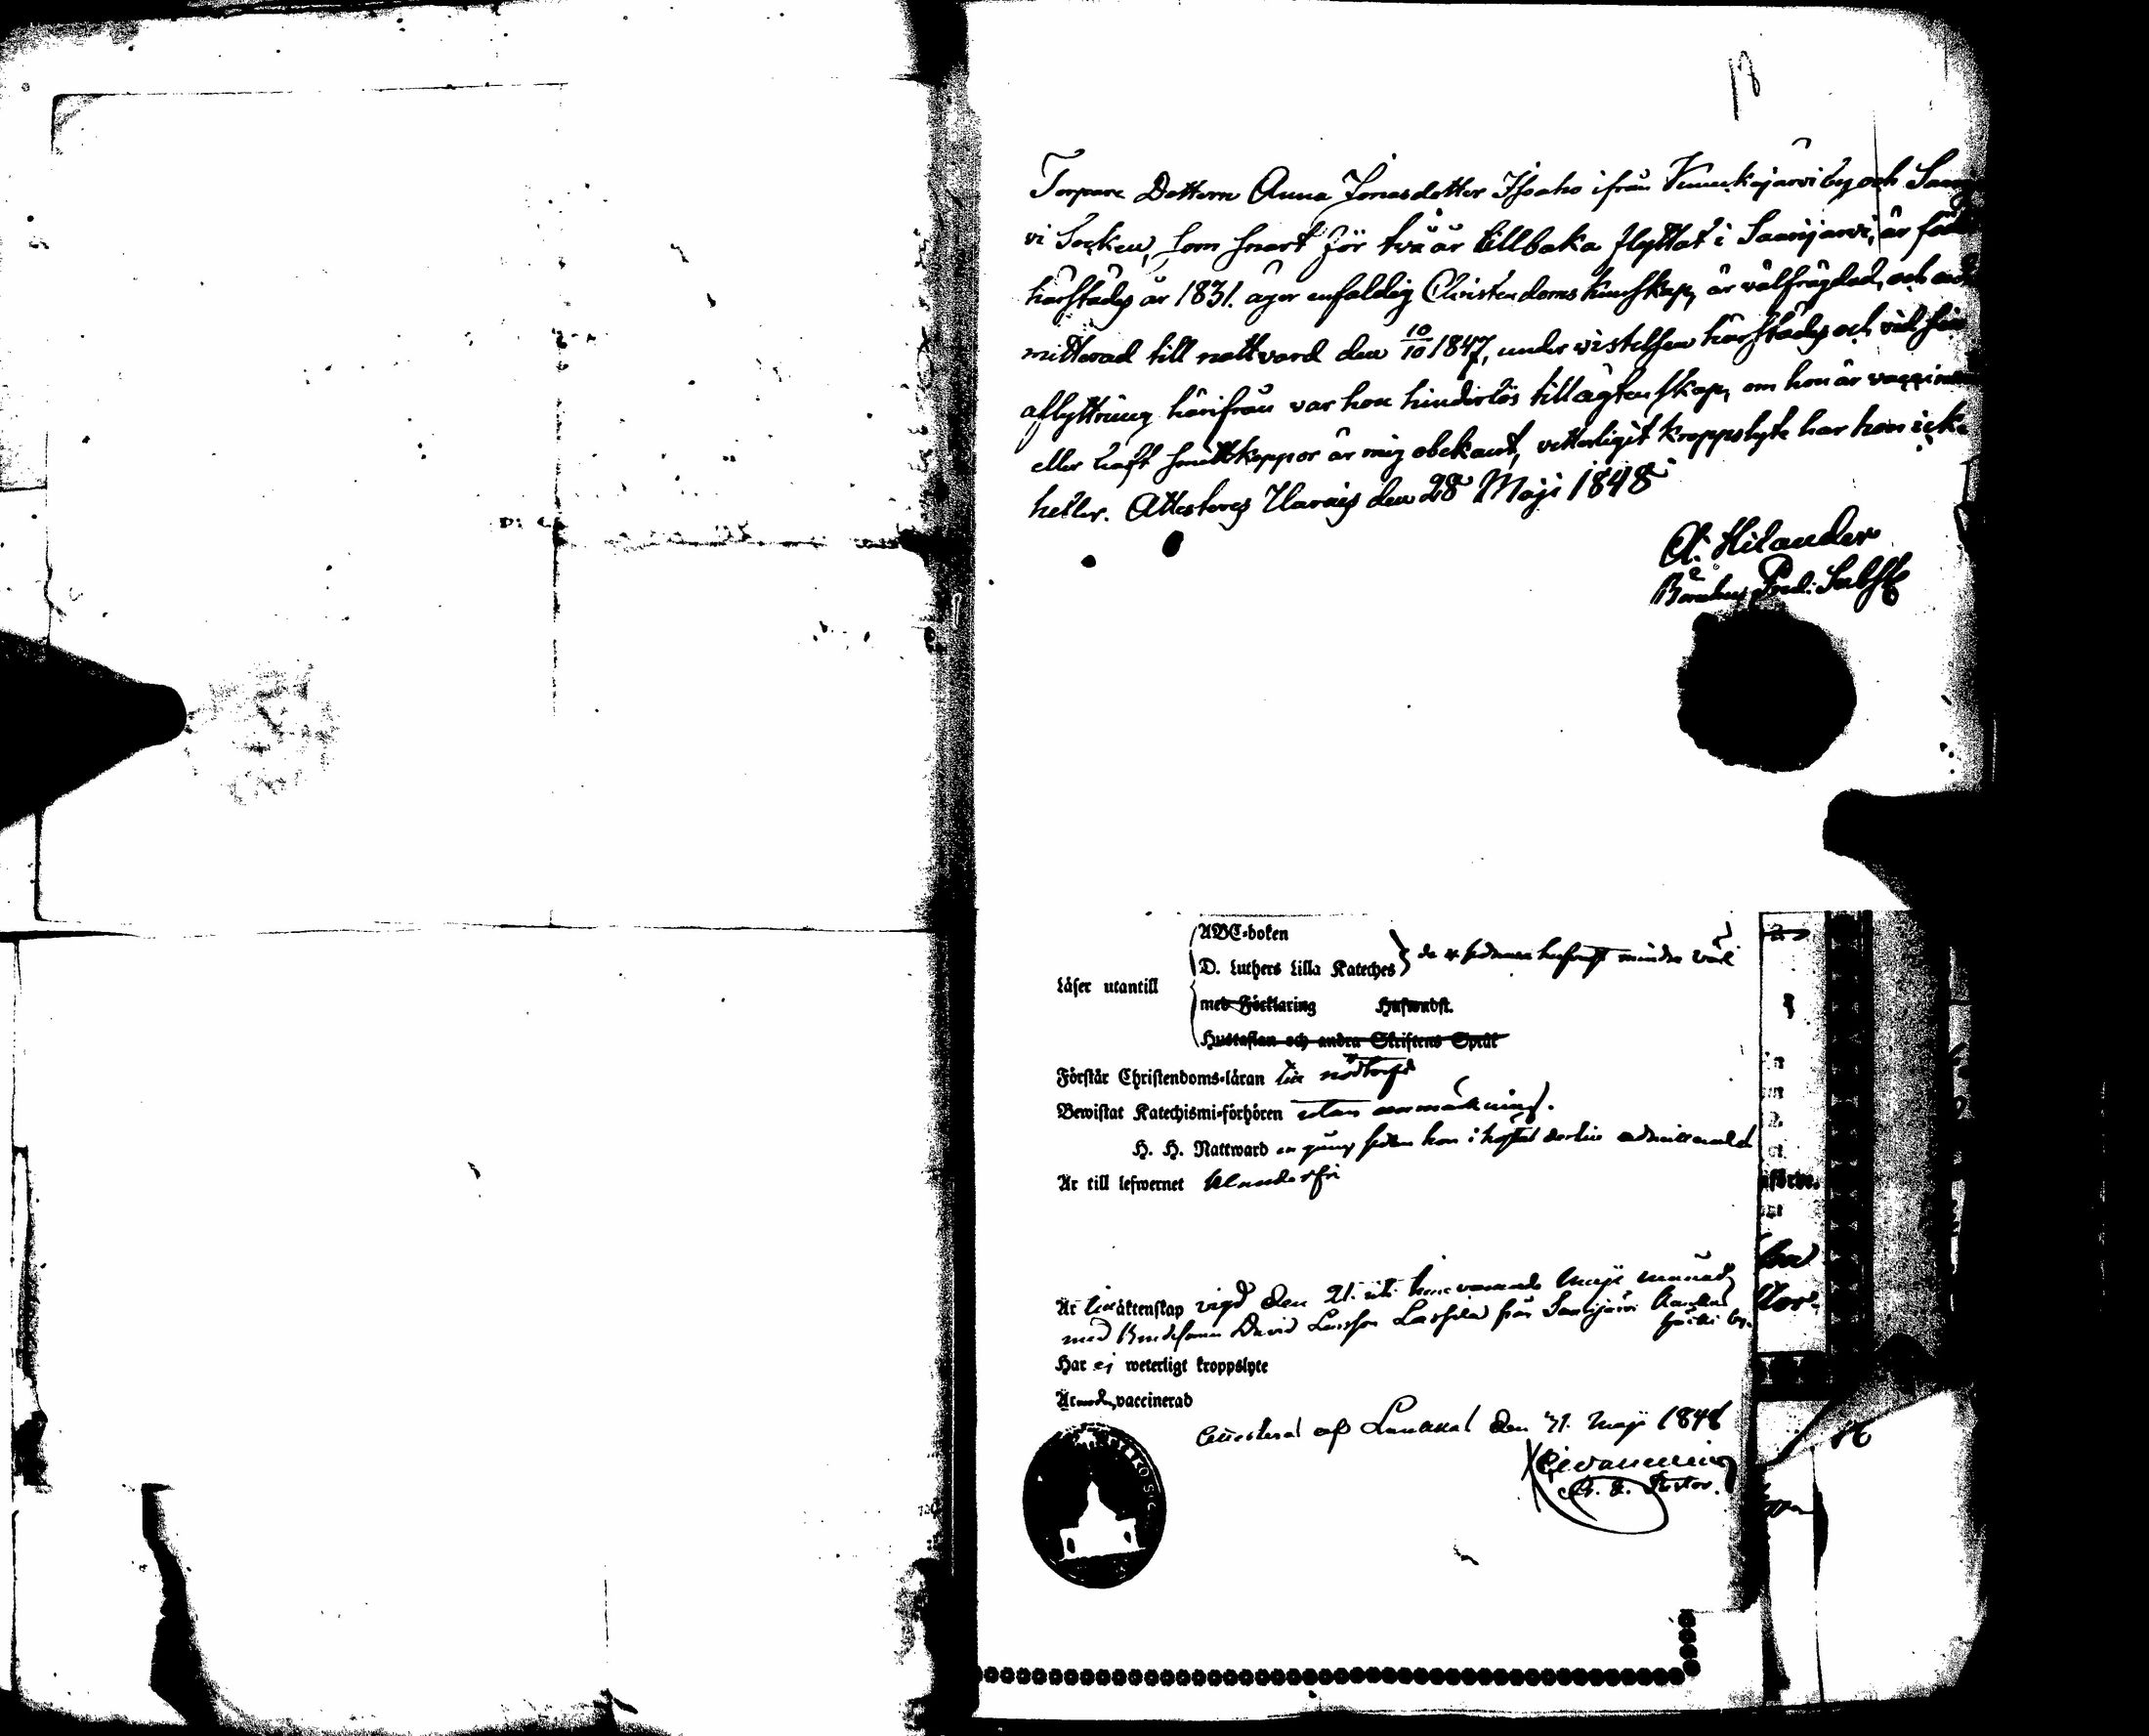 18
Torpare Dottern Anna Jonasdotter Isoaho ifrån Kimikajärvi by och Saarijär
vi Socken, som snart för två år tillbaka flyttat i Saarijärvi, är född
härstädes år 1831. äger enfaldig Christendoms kunskap, är välfrägdad, och ad
mitterad till nattvard den 10/10 1847, under vistelsen härstädes och vid sin
aflyttning härifrån var hon hinderlös till ägtenskap, om hon är vaccinerad
eller haft smittkoppor är mig obekant, vetterligit kroppslyte har hon icke
heller. Attesteres den 28 Maji 1848
A. Hilander
Pred. Subst
ABC-boken
D. Luthers Lilla Kateches de mindre väl
Läser utantill
med Förklaring Hufwudst.
Hustaflan och andra Skriftens Språk
Förstår Christendoms-läran till nödtorft
Bewistat Katechismi-förhören utan anmärkning.
H. H. Nattward en gång sedan hon i höstas dertill admitterades
Är till lefwernet klanderfri
Är till äktenskap vigd den 21. uti innevarande Maji månad
med Bondesonen David Larsson från Saarijärvi by.
Har ej weterligt kroppslyte
Är vaccinerad
Attesterad af den 31. Maji 1848
Pastor.